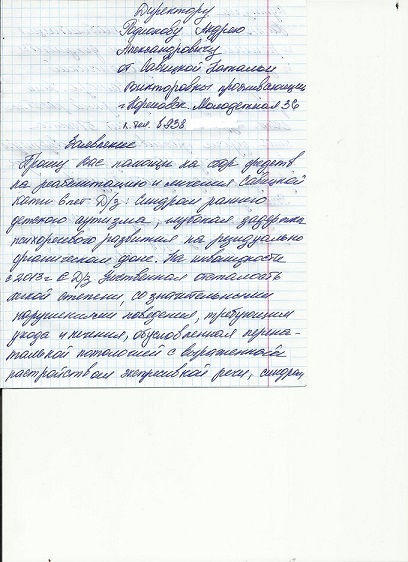 Директору
Андрею
Александровичу
от Савицкой Натальи
Викторовны проживающей
г. Кореновск. Молодежная 36
к. тел. 8938
Заявление
Прошу Вас помощи на сбор средств
на реабилитацию и лечения Савицкой
Кати 6 лет. Д/з: Синдром раннего
детского аутизма, глубокая задержка
психоречевого развития на резидуально
органическом фоне. На инвалидности
с 2013г с Д/з Умственная отсталость
легкой степени, со значительными
нарушениями поведения, требующими
ухода и лечения, обусловленная перина-
тальной патологией с выраженным
расстройством экспрессивной речи, синдром